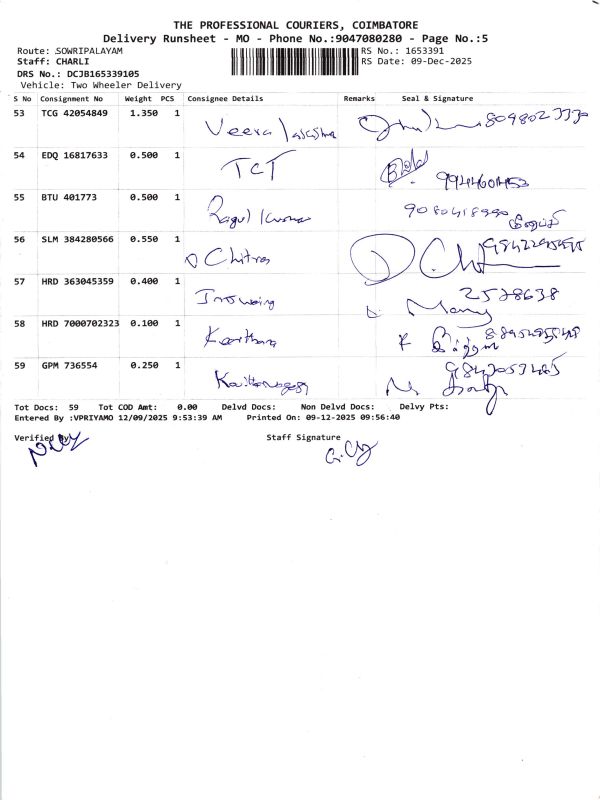 THE PROFESSIONAL COURIERS, COIMBATORE
Delivery Runsheet - MO - Phone No.:9047080280 - Page No.:5
Route: SOWRIPALAYAM RS No.: 1653391
Staff: CHARLI RS Date: 09-Dec-2025
DRS No.: DCJB165339105
Vehicle: Two Wheeler Delivery
S No Consignment No Weight PCS Consignee Details Remarks Seal & Signature
53 TCG 42054849 1.350 1 Veera
54 EDQ 16817633 0.500 1 TCT
55 BTU 401773 0.500 1 Ragul Kumar
56 SLM 384280566 0.550 1 D Chitra
57 HRD 363045359 0.400 1 2578638
58 HRD 7000702323 0.100 1
59 GPM 736554 0.250 1
Tot Docs: 59 Tot COD Amt: 0.00 Delvd Docs: Non Delvd Docs: Delvy Pts:
Entered By :VPRIYAMO 12/09/2025 9:53:39 AM Printed On: 09-12-2025 09:56:40
Verified By Staff Signature